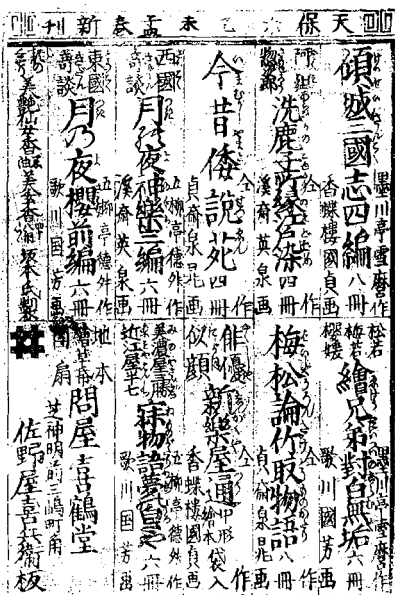 天保六乙未孟春新刊
傾城三國志四編 八冊 墨川亭雪麿作 香蝶樓國貞画
洗鹿子紫江戸染 四冊 仝作 溪斎英泉画
今昔倭説苑 四冊 仝作 貞斎泉晁画
西國奇談 月の夜神樂三編 六冊 五柳亭徳升作 溪斎英泉画
東國奇談 月乃夜櫻前編 六冊 五柳亭徳升作 歌川国芳画
美艶仙女香 美玄香 坂本氏製
松若 梅若 櫻姫 繪兄弟對白無垢 六冊 墨川亭雪麿作 歌川國芳画
梅松論竹取物語 八冊 仝作 貞斎泉晁画
俳優似顔 新樂屋通 中形繪本袋入 仝作 香蝶樓國貞画
美濃屋三勝 近江屋半七 物語夢 六冊 五柳亭徳升作 歌川国芳画
地本 繪草帋 團扇 問屋 喜鶴堂
芝神明前三嶋町角
佐野屋喜兵衛板